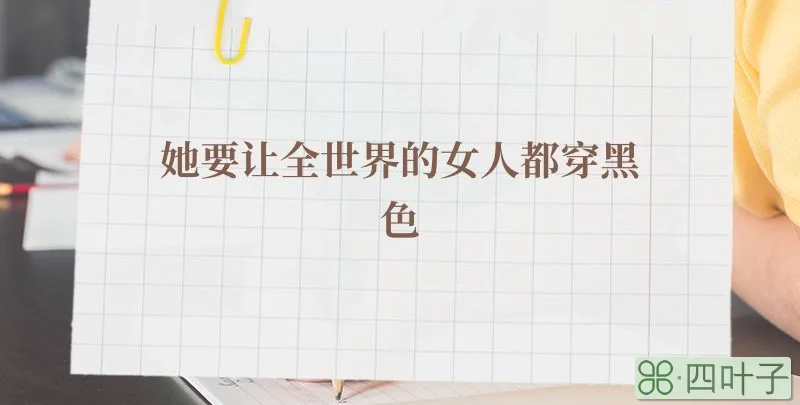 她要让全世界的女人都穿黑
色
四叶子